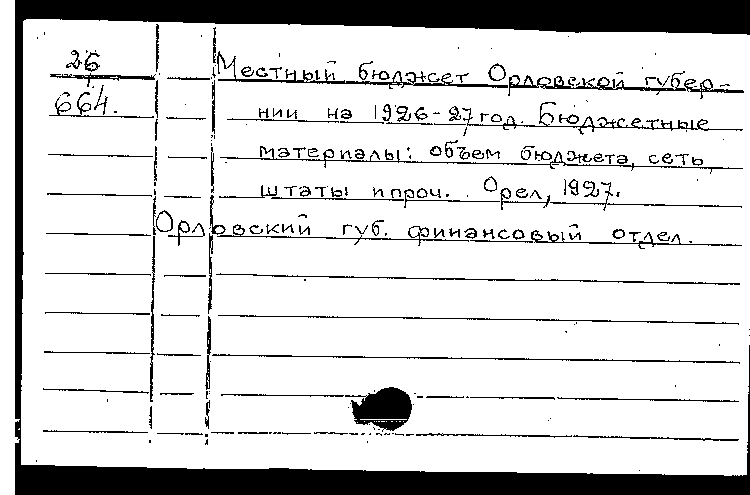 26
664.
Местный бюджет Орловской губер-
нии на 1926-27 год. Бюджетные
материалы: объем бюджета, сеть,
штаты и проч. Орел, 1927.
Орловский губ. финансовый отдел.